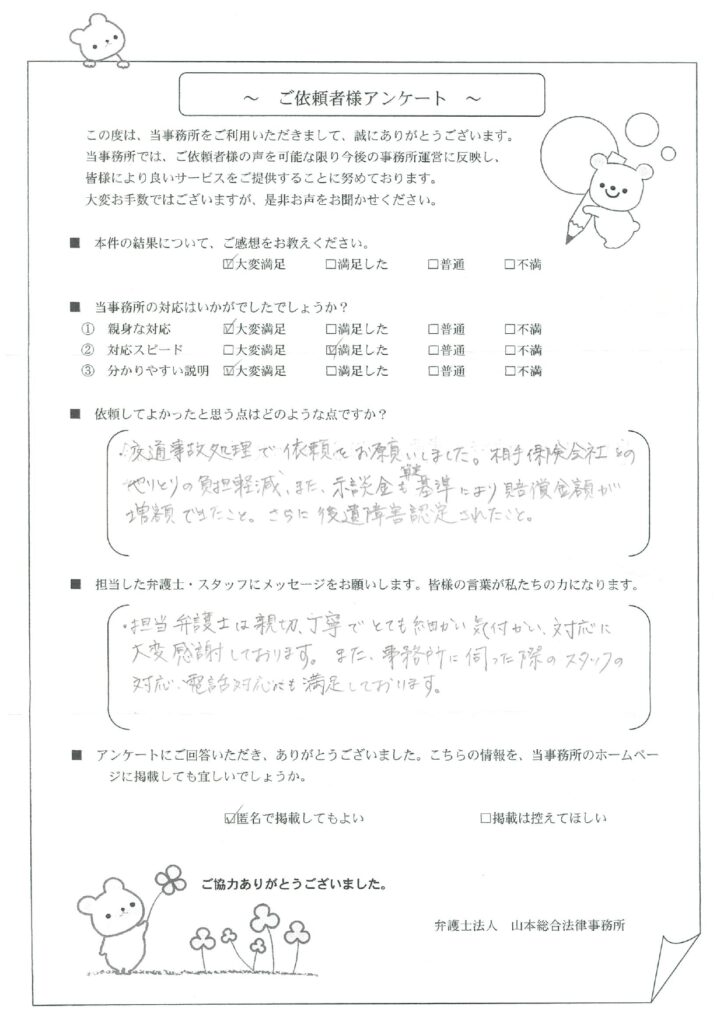 ～ ご依頼者様アンケート ～
この度は、当事務所をご利用いただきまして、誠にありがとうございます。
当事務所では、ご依頼者様の声を可能な限り今後の事務所運営に反映し、
皆様により良いサービスをご提供することに努めております。
大変お手数ではございますが、是非お声をお聞かせください。
■ 本件の結果について、ご感想をお教えください。
☑大変満足 □満足した □普通 □不満
■ 当事務所の対応はいかがでしたでしょうか？
① 親身な対応 ☑大変満足 □満足した □普通 □不満
② 対応スピード □大変満足 ☑満足した □普通 □不満
③ 分かりやすい説明 ☑大変満足 □満足した □普通 □不満
■ 依頼してよかったと思う点はどのような点ですか？
・交通事故処理で依頼をお願いしました。相手保険会社との
やりとりの負担軽減、また、示談金も 基準により賠償金額が
増額できたこと。さらに後遺障害認定されたこと。
■ 担当した弁護士・スタッフにメッセージをお願いします。皆様の言葉が私たちの力になります。
・担当弁護士は親切、丁寧でとても細かい気付かい、対応に
大変感謝しております。また、事務所に伺った際のスタッフの
対応、電話対応にも満足しております。
■ アンケートにご回答いただき、ありがとうございました。こちらの情報を、当事務所のホームペー
ジに掲載しても宜しいでしょうか。
☑匿名で掲載してもよい □掲載は控えてほしい
ご協力ありがとうございました。
弁護士法人 山本総合法律事務所